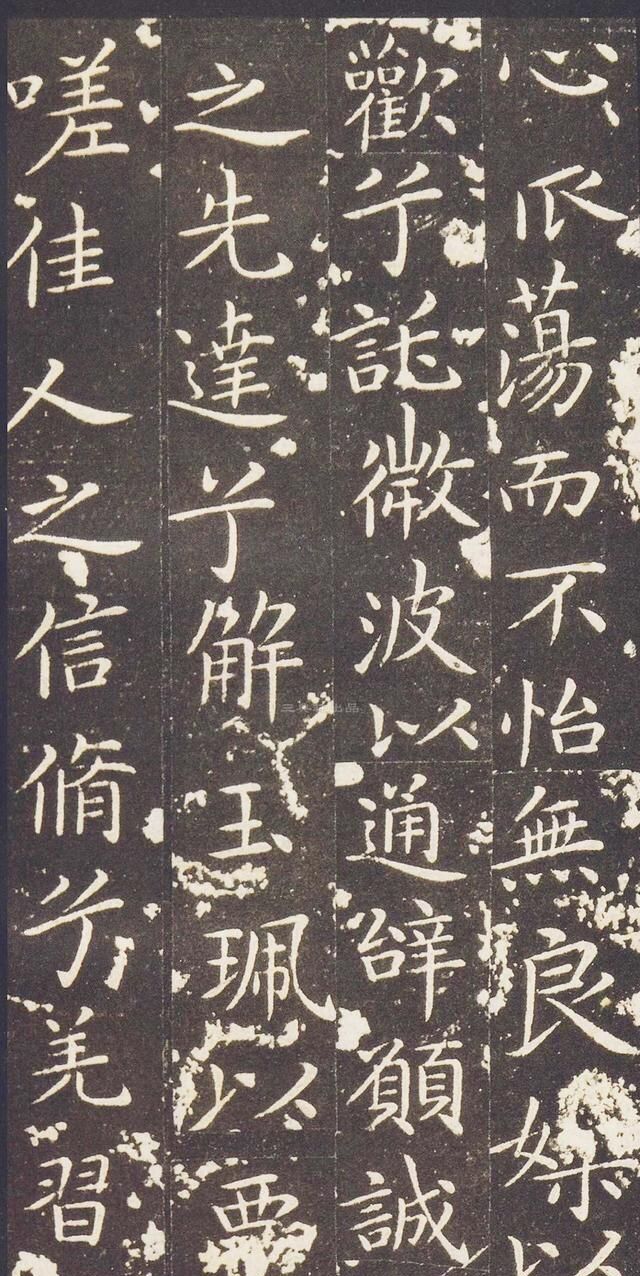 心振蕩而不怡無良媒以
歡兮託微波以通辭願誠
之先達兮解玉珮以要
嗟佳人之信脩兮羌習